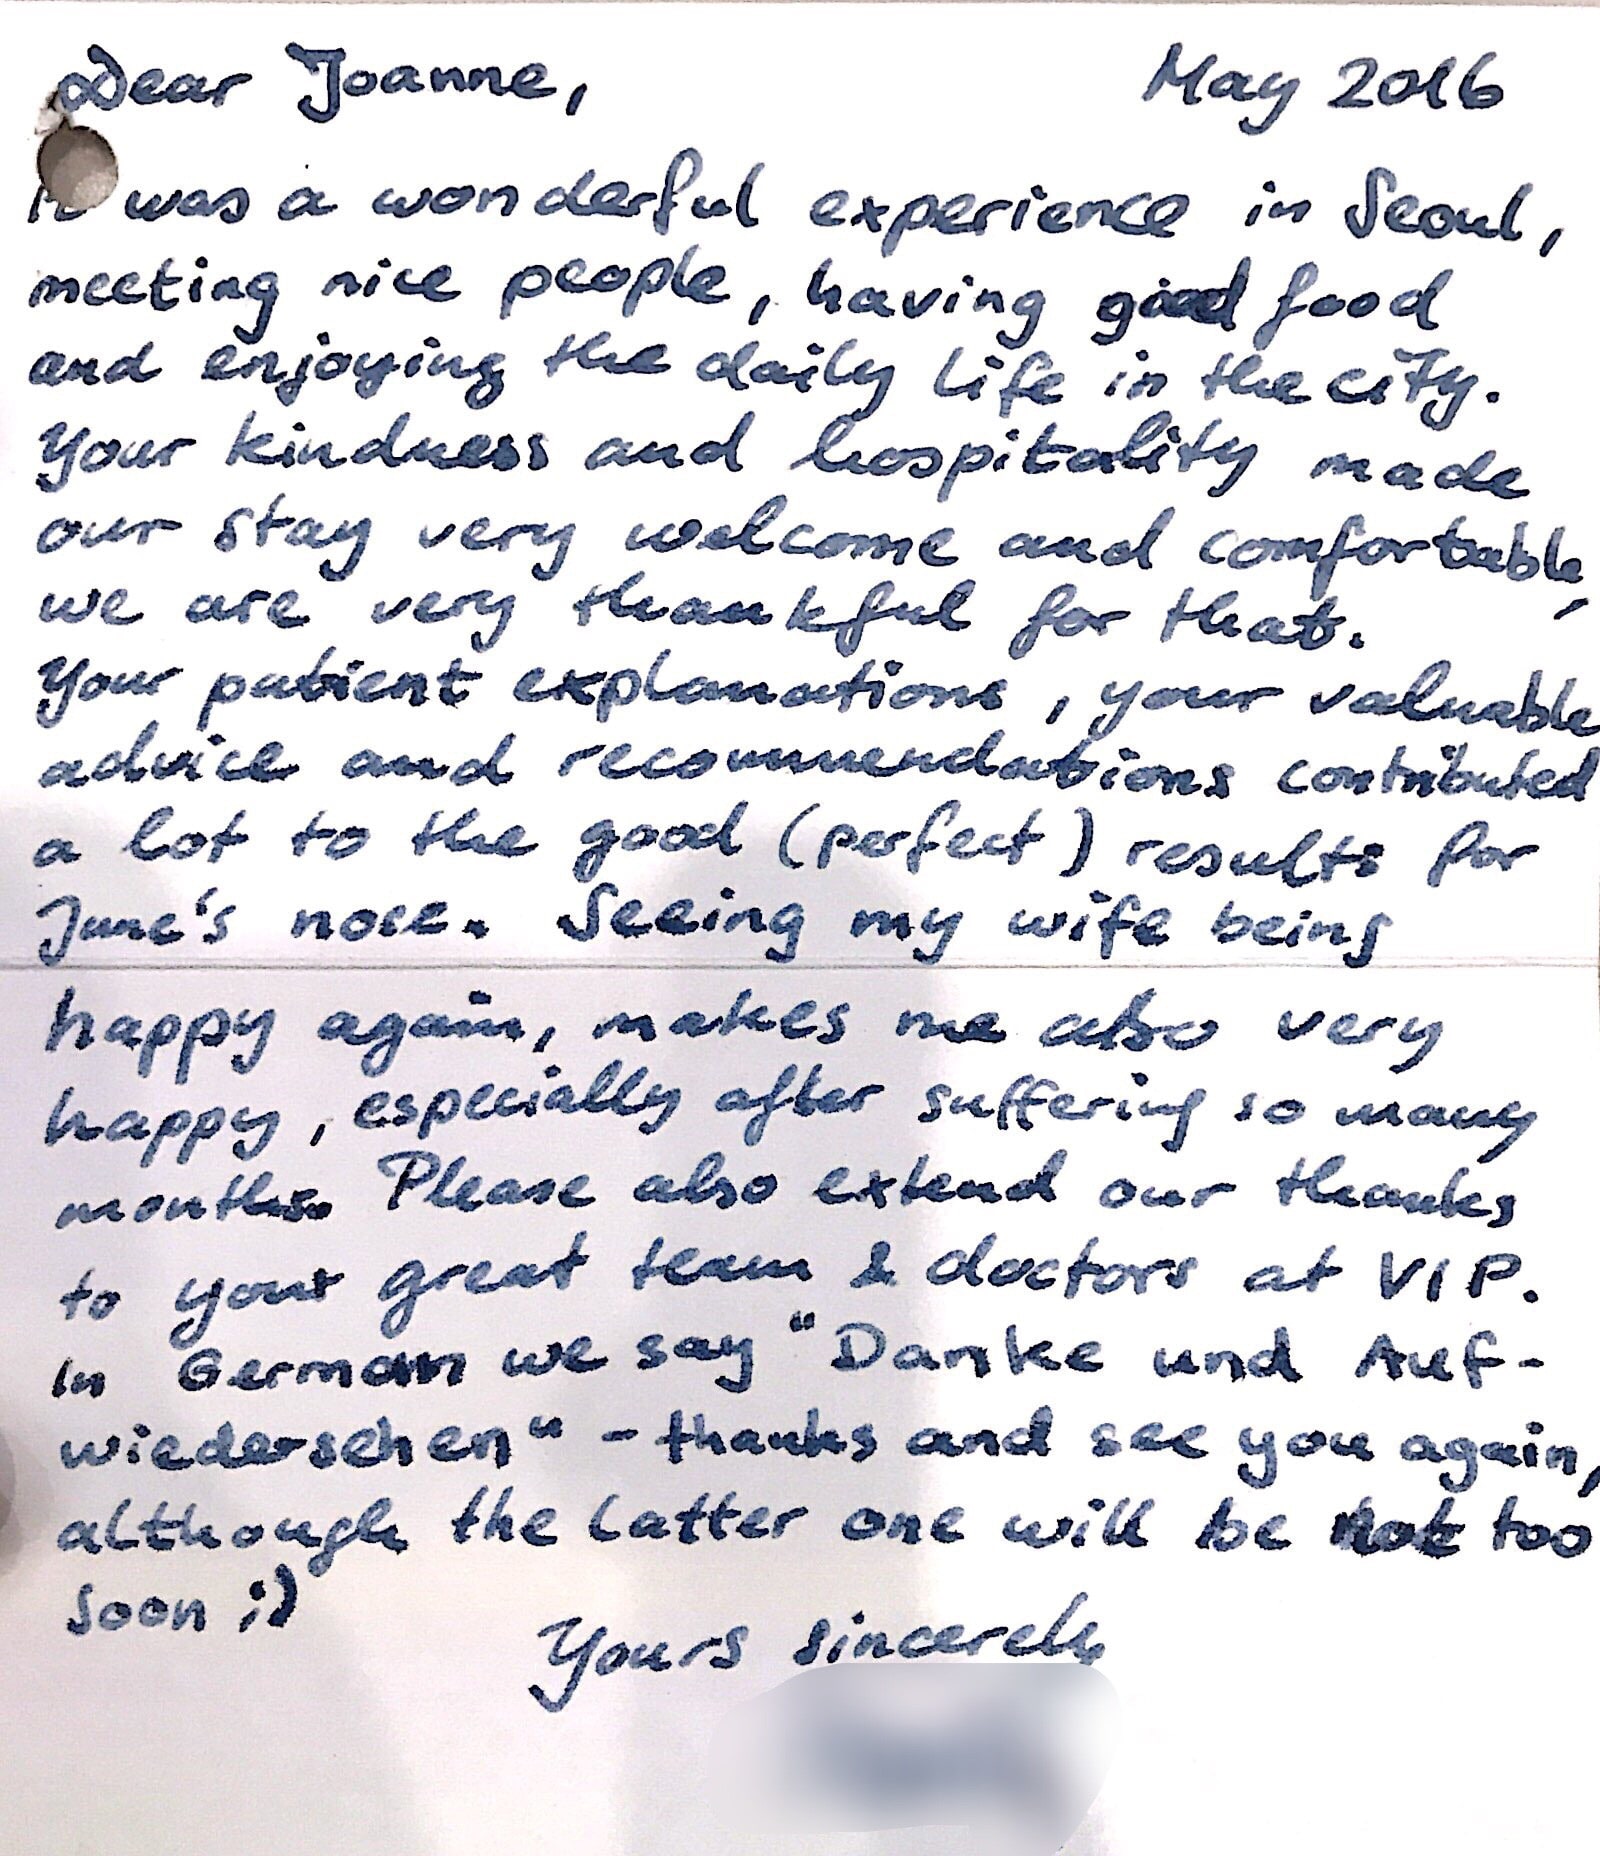 Dear Joanne, May 2016
It was a wonderful experience in Seoul,
meeting nice people, having good food
and enjoying the daily life in the city.
Your kindness and hospitality made
our stay very welcome and comfortable,
we are very thankful for that.
Your patient explanations, your valuable
advice and recommendations contributed
a lot to the good (perfect) results for
June's nose. Seeing my wife being
happy again, makes me also very
happy, especially after suffering so many
months. Please also extend our thanks
to your great team & doctors at VIP.
In German we say "Danke und Auf-
wiedersehen" - thanks and see you again,
although the latter one will be not too
soon ;)
Yours sincerely